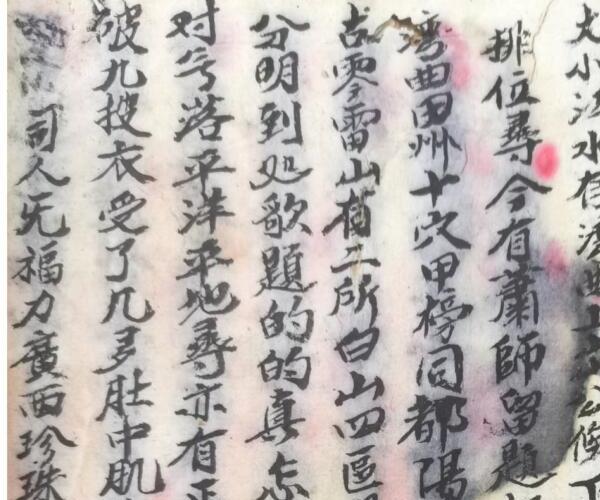 大小江水有
排位尋今有蕭師留題
湾曲田州十穴甲榜同都陽
古零雷山有二所白山四區
分明到处歌題的的真
对兮落平洋平地尋亦有
破九搜衣受了几多肚中肌
司人无福力廣西珍珠